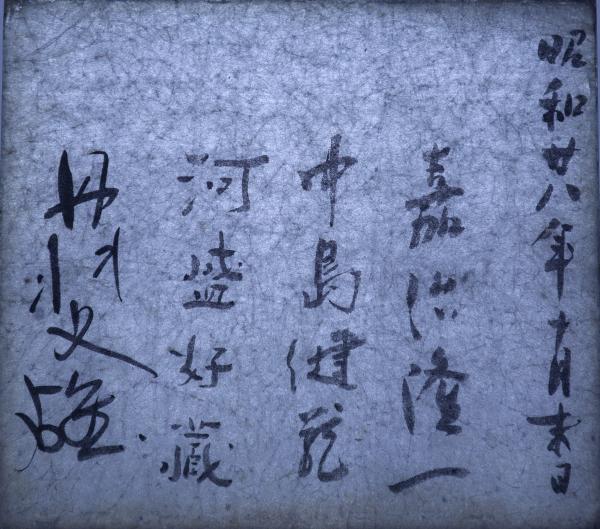 昭和廿八年十月末日
嘉治隆一
中島健蔵
河盛好藏
丹羽文雄